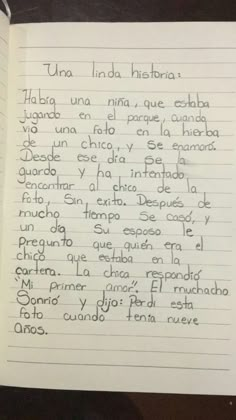 Una linda historia:
Había una niña, que estaba
jugando en el parque, cuando
vió una foto en la hierba
de un chico, y se enamoró.
Desde ese día se la
guardo y ha intentado,
encontrar al chico de la
foto, Sin, exito. Después de
mucho tiempo se casó, y
un día su esposo le
pregunto que quién era el
chico que estaba en la
cartera. La chica respondió
"Mi primer amor". El muchacho
Sonrió y dijo: Perdí esta
foto cuando tenía nueve
años.